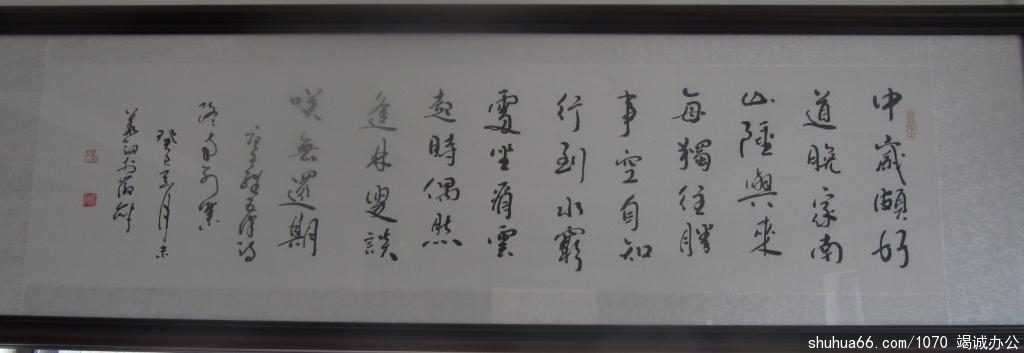 中歲頗好
道晚家南
山陲興來
每獨往勝
事空自知
行到水窮
處坐看雲
起時偶然
逢林叟談
咲無還期
終南別業
癸巳夏月末
shuhua66.com/1070 竭诚办公